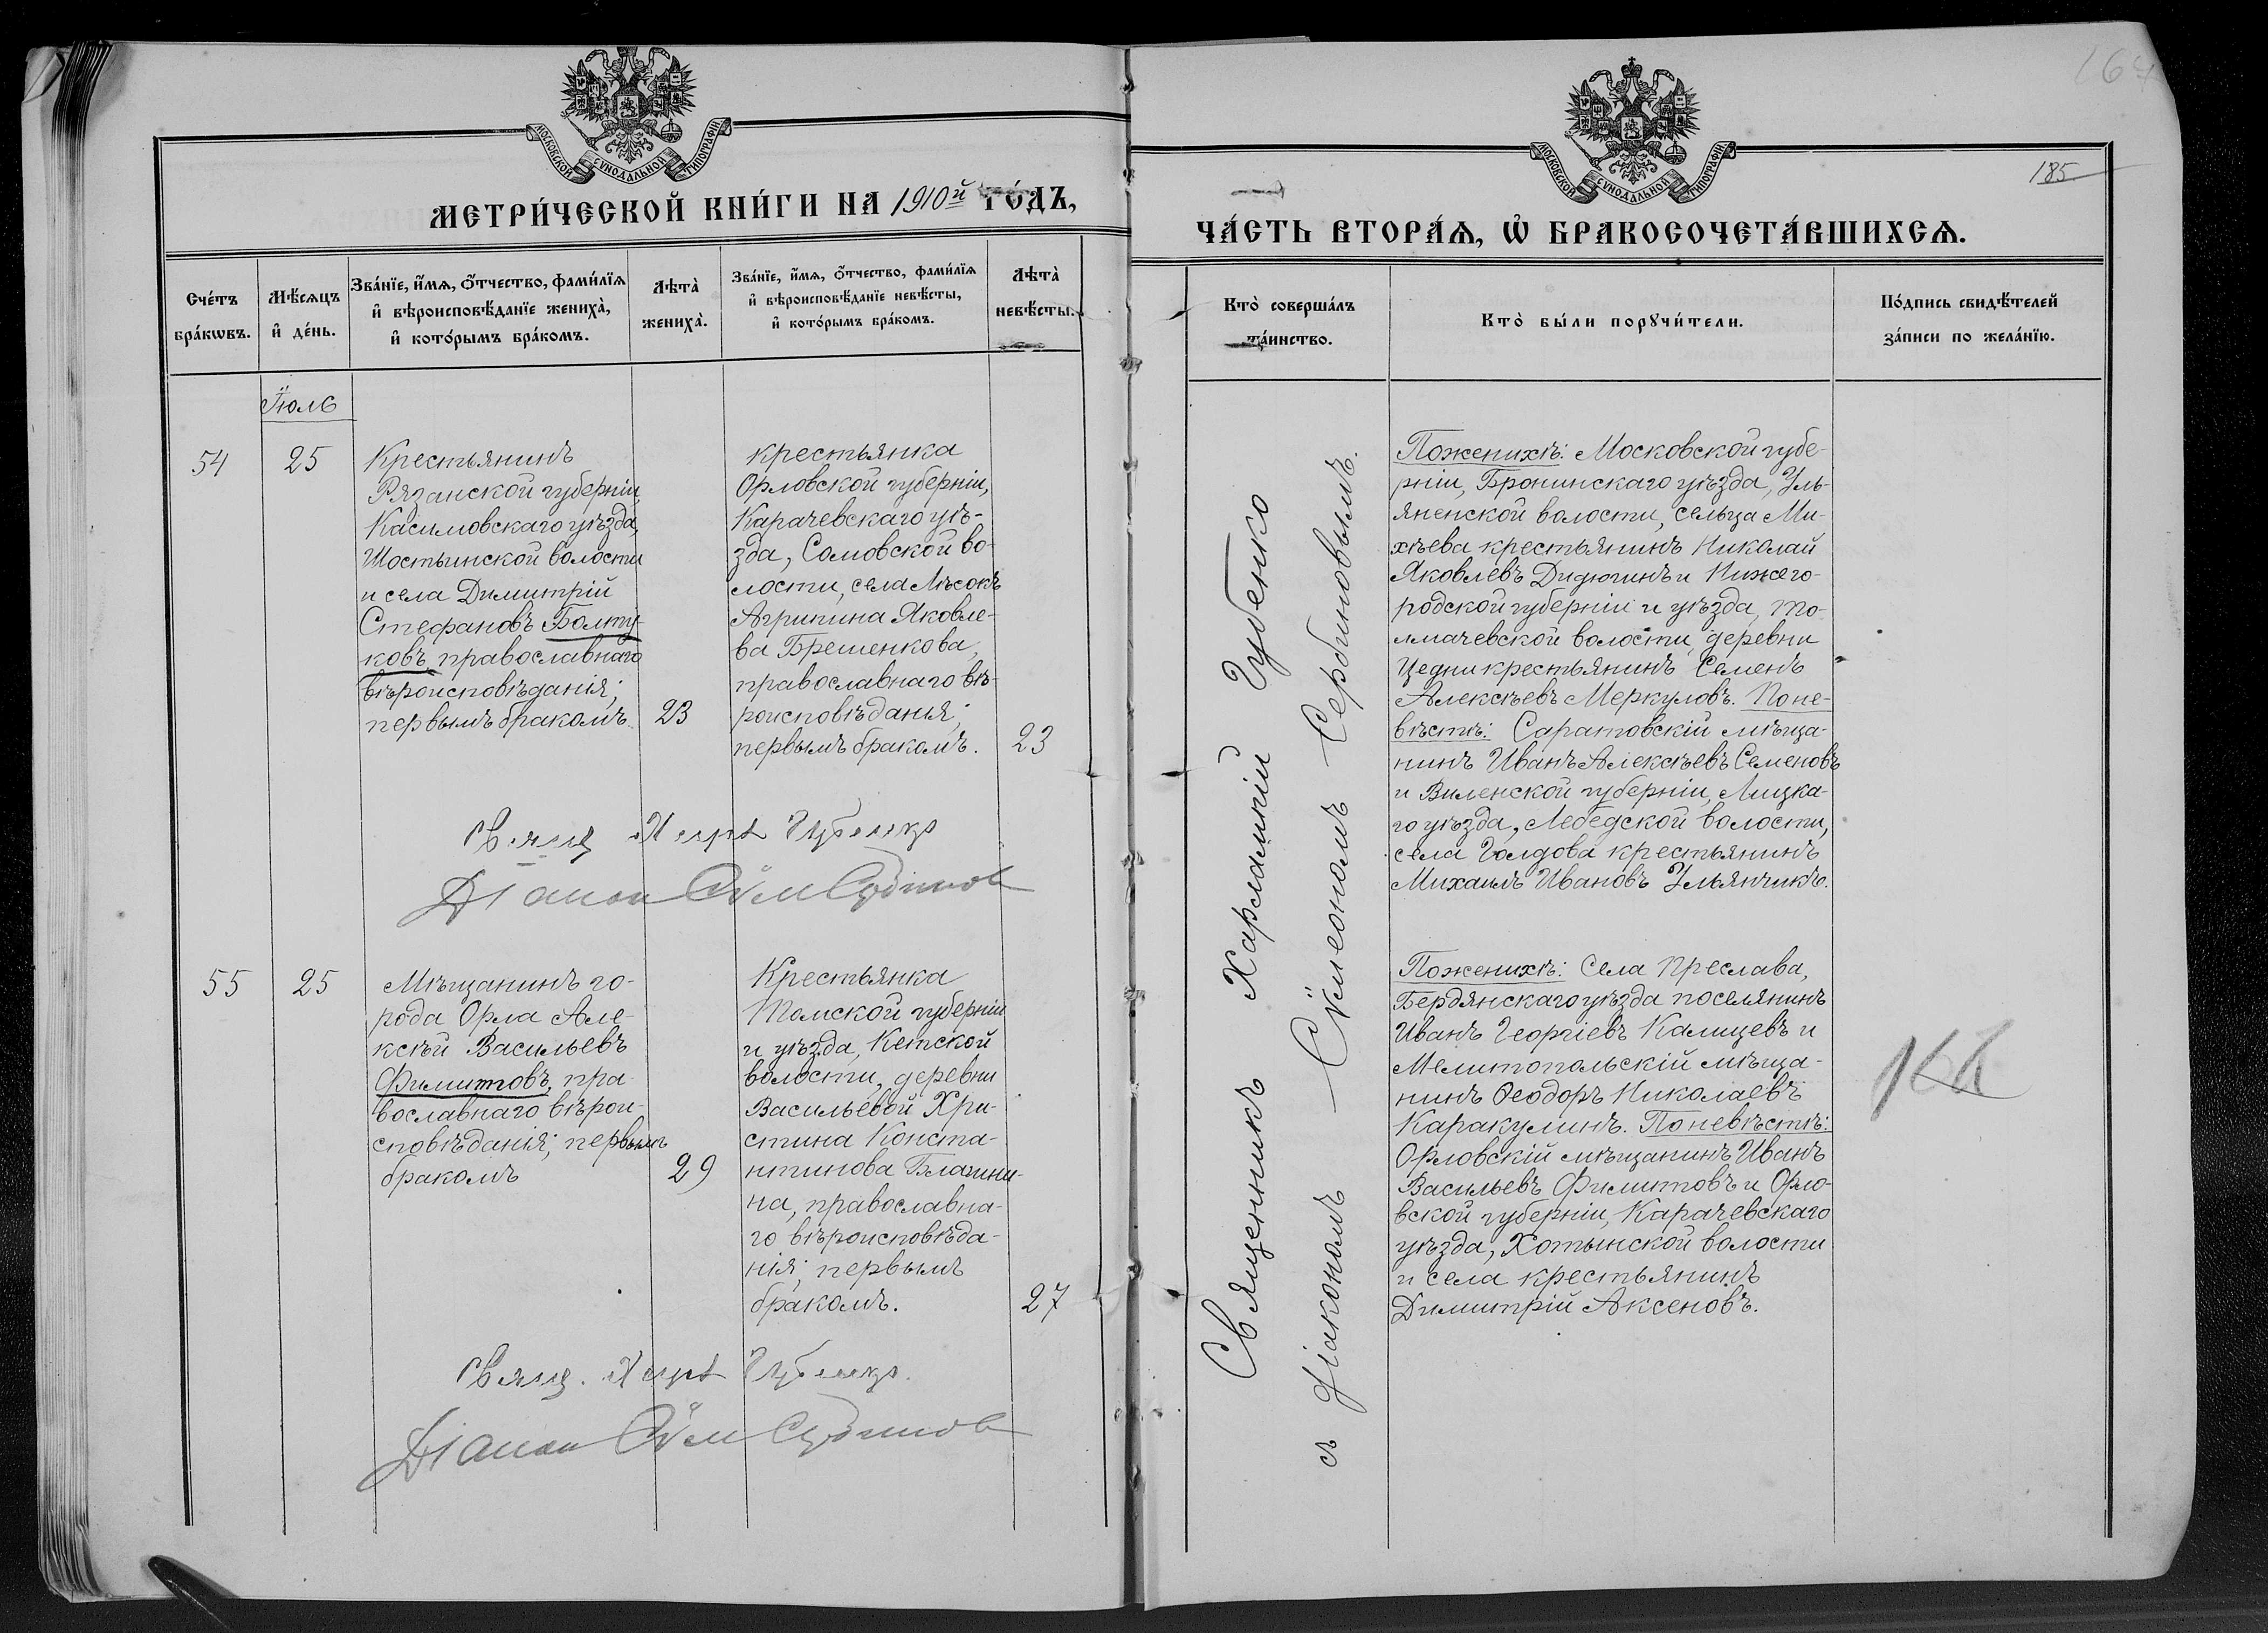 МОСКОВСКОЙ СѴНОДАЛЬНОЙ ТИПОГРАФІИ
МЕТРИ́ЧЕСКОЙ КНИ́ГИ НА 1910й ГО́ДЪ,
Сче́тъ бра́кѡвъ.
Мѣ́сяцъ и҆ де́нь.
Зва́нїе, и҆́мѧ, ѻ҆́тчество, фами́лїѧ
и҆ вѣроисповѣ́данїе жениха̀,
и҆ кото́рымъ бра́комъ.
Лѣта̀ жениха̀.
Зва́нїе, и҆́мѧ, ѻ҆́тчество, фами́лїѧ
и҆ вѣроисповѣ́данїе невѣ́сты,
и҆ кото́рымъ бра́комъ.
Лѣта̀ невѣ́сты.
Іюль
54
25
Крестьянинъ
Рязанской губерніи,
Касимовскаго уѣзда,
Шостьинской волости
и села Димитрій
Стефановъ Болту-
ковъ, православнаго
вѣроисповѣданія;
первымъ бракомъ.
23
крестьянка
Орловской губерніи,
Карачевскаго уѣ-
зда, Сомовской во-
лости, села Лѣсокъ
Агрипина Яковле-
ва Брешенкова,
православнаго вѣ-
роисповѣданія;
первымъ бракомъ.
23
Свящ. Харл. Губенко
Діакон Сѵм Сербинов
55
25
Мѣщанинъ го-
рода Орла Але-
ксѣй Васильевъ
Филитовъ, пра-
вославнаго вѣрои-
сповѣданія; первымъ
бракомъ
29
Крестьянка
Томской губерніи
и уѣзда, Кетской
волости, деревни
Васильевой Хри-
стина Конста-
нтинова Благини-
на, православна-
го вѣроисповѣда-
нія; первымъ
бракомъ.
27
Свящ. Харл. Губенко.
Діакон Сѵм Сербинов
МОСКОВСКОЙ СѴНОДАЛЬНОЙ ТИПОГРАФІИ
185
ЧА́СТЬ ВТОРА́Ѧ, Ѽ БРАКОСОЧЕТА́ВШИХСѦ.
Кто̀ соверша́лъ
та́инство.
Кто̀ бы́ли порꙋчи́тели.
По́дпись свидѣ́телей
за́писи по жела́нїю.
Священникъ Харлампій Губенко
съ діакономъ Сѵмеономъ Сербиновымъ.
По женихѣ: Московской губе-
рніи, Бронинскаго уѣзда, Уль-
яненской волости, сельца Ми-
хѣева крестьянинъ Николай
Яковлевъ Дидюгинъ и Нижего-
родской губерніи и уѣзда, То-
лмачевской волости, деревни
Цедни крестьянинъ Семенъ
Алексѣевъ Меркуловъ. По не-
вѣстѣ: Саратовскій мѣща-
нинъ Иванъ Алексѣевъ Семеновъ
и Виленской губерніи, Лидзка-
го уѣзда, Лебедской волости,
села Голдова крестьянинъ
Михаилъ Ивановъ Ульянчикъ.
По женихѣ: Села Преслава,
Бердянскаго уѣзда поселянинъ
Иванъ Георгіевъ Калицевъ и
Мелитопольскій мѣща-
нинъ Ѳеодоръ Николаевъ
Каракулинъ. По невѣстѣ:
Орловскій мѣщанинъ Иванъ
Васильевъ Филитовъ и Орло-
вской губерніи, Карачевскаго
уѣзда, Хотынской волости
и села крестьянинъ
Димитрій Аксеновъ.